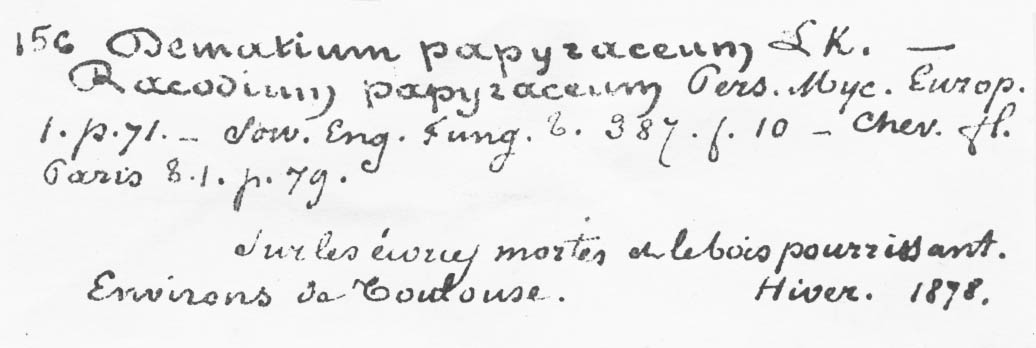 156 Dematium papyraceum LK. —
Racodium papyraceum Pers. Myc. Europ.
1. p. 71. — Sow. Eng. Fung. t. 387. f. 10 — Chev. fl.
Paris t. 1. p. 79.
Sur les écorces mortes et le bois pourrissant.
Environs de Toulouse. Hiver. 1878.